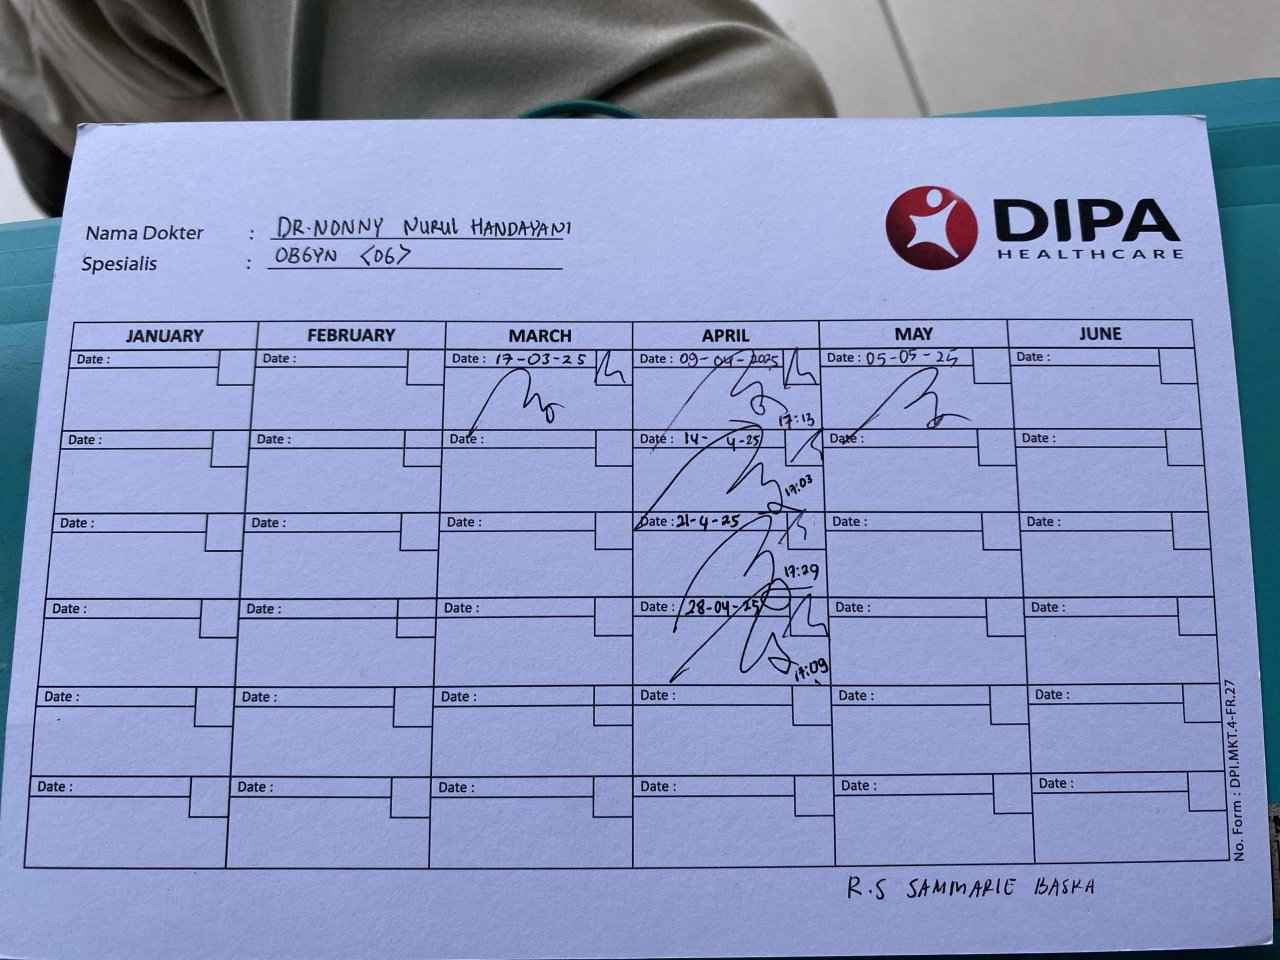 Nama Dokter : DR. NONNY NURUL HANDAYANI
Spesialis : OBGYN <OG>
DIPA
HEALTHCARE
JANUARY FEBRUARY MARCH APRIL MAY JUNE
Date : Date : Date : 17-03-25 Date : 09-04-2025 Date : 05-05-25 Date :
17:13
Date : Date : Date : Date : 14- 4-25 Date : Date :
17:03
Date : Date : Date : Date : 21-4-25 Date : Date :
17:29
Date : Date : Date : Date : 28-04-25 Date : Date :
17:09
Date : Date : Date : Date : Date : Date :
Date : Date : Date : Date : Date : Date :
No. Form : DPI.MKT.4-FR.27
R.S SAMMARIE BASRA